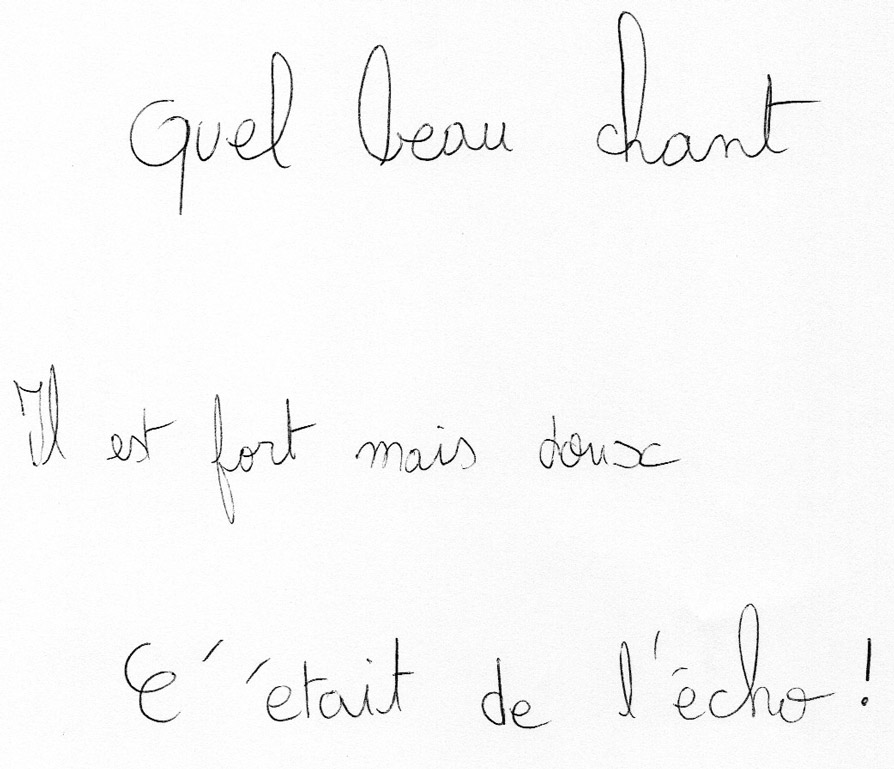 Quel beau chant
Il est fort mais doux
C'était de l'écho !